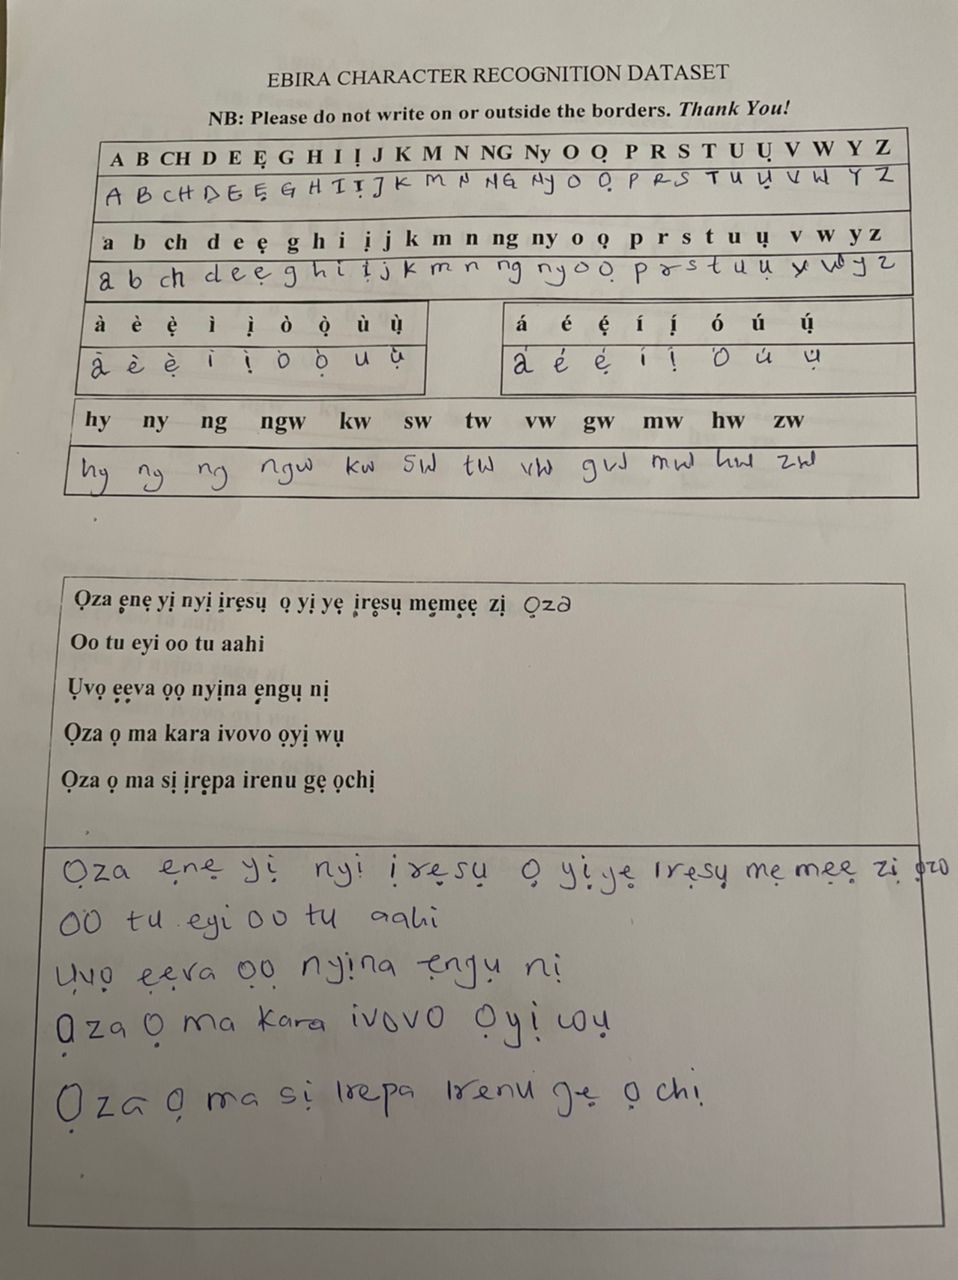 EBIRA CHARACTER RECOGNITION DATASET
NB: Please do not write on or outside the borders. Thank You!
A B CH D E Ẹ G H I Ị J K M N NG Ny O Ọ P R S T U Ụ V W Y Z
A B CH D E Ẹ G H I Ị J K M N NG Ny O Ọ P R S T U Ụ V W Y Z
a b ch d e ẹ g h i ị j k m n ng ny o ọ p r s t u ụ v w y z
a b ch d e ẹ g h i ị j k m n ng ny o ọ p r s t u ụ v w y z
à è ẹ̀ ì ị̀ ò ọ̀ ù ụ̀ á é ẹ́ í ị́ ó ú ụ́
à è ẹ̀ ì ị̀ ò ọ̀ u ụ̀ á é ẹ́ í ị ó ú ụ́
hy ny ng ngw kw sw tw vw gw mw hw zw
hy ny ng ngw kw sw tw vw gw mw hw zw
Ọza ẹnẹ yị nyị ịrẹsụ ọ yị yẹ ịrẹsụ mẹmẹẹ zị ọza
Oo tu eyi oo tu aahi
Ụvọ ẹẹva ọọ nyịna ẹngụ nị
Ọza ọ ma kara ivovo ọyị wụ
Ọza ọ ma sị ịrẹpa irenu gẹ ọchị
Ọza ẹnẹ yị nyị ịrẹsụ ọ yị yẹ Irẹsụ mẹ mẹẹ zị ọzo
OO tu eyi oo tu aahi
Ụvọ ẹẹva ọọ nyịna ẹngụ nị
Ọza Ọ ma kara ivovo Ọyị wụ
Ọza ọ ma sị Irepa Irenu gẹ ọ chị